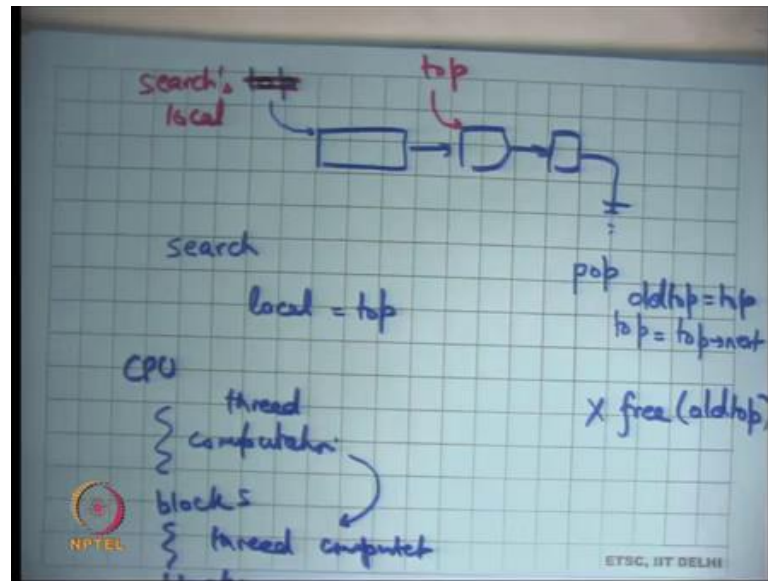 search's top
local
top
search
local = top
pop
oldtop = top
top = top→next
X free (oldtop)
CPU
thread
computation
blocks
thread computes
NPTEL
ETSC, IIT DELHI